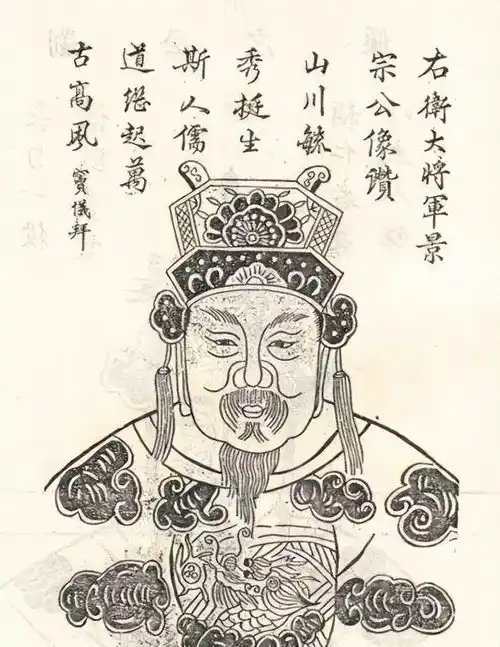 右衛大將軍景
宗公像讚
山川毓
秀挺生
斯人儒
道継起萬
古高風 竇儀拜